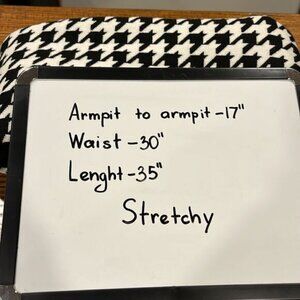 Armpit to armpit -17"
Waist -30"
Lenght -35"
Stretchy